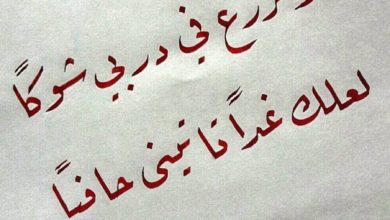 تزرع في دربي شوكاً
لعلك غداً تاتيني حافياً